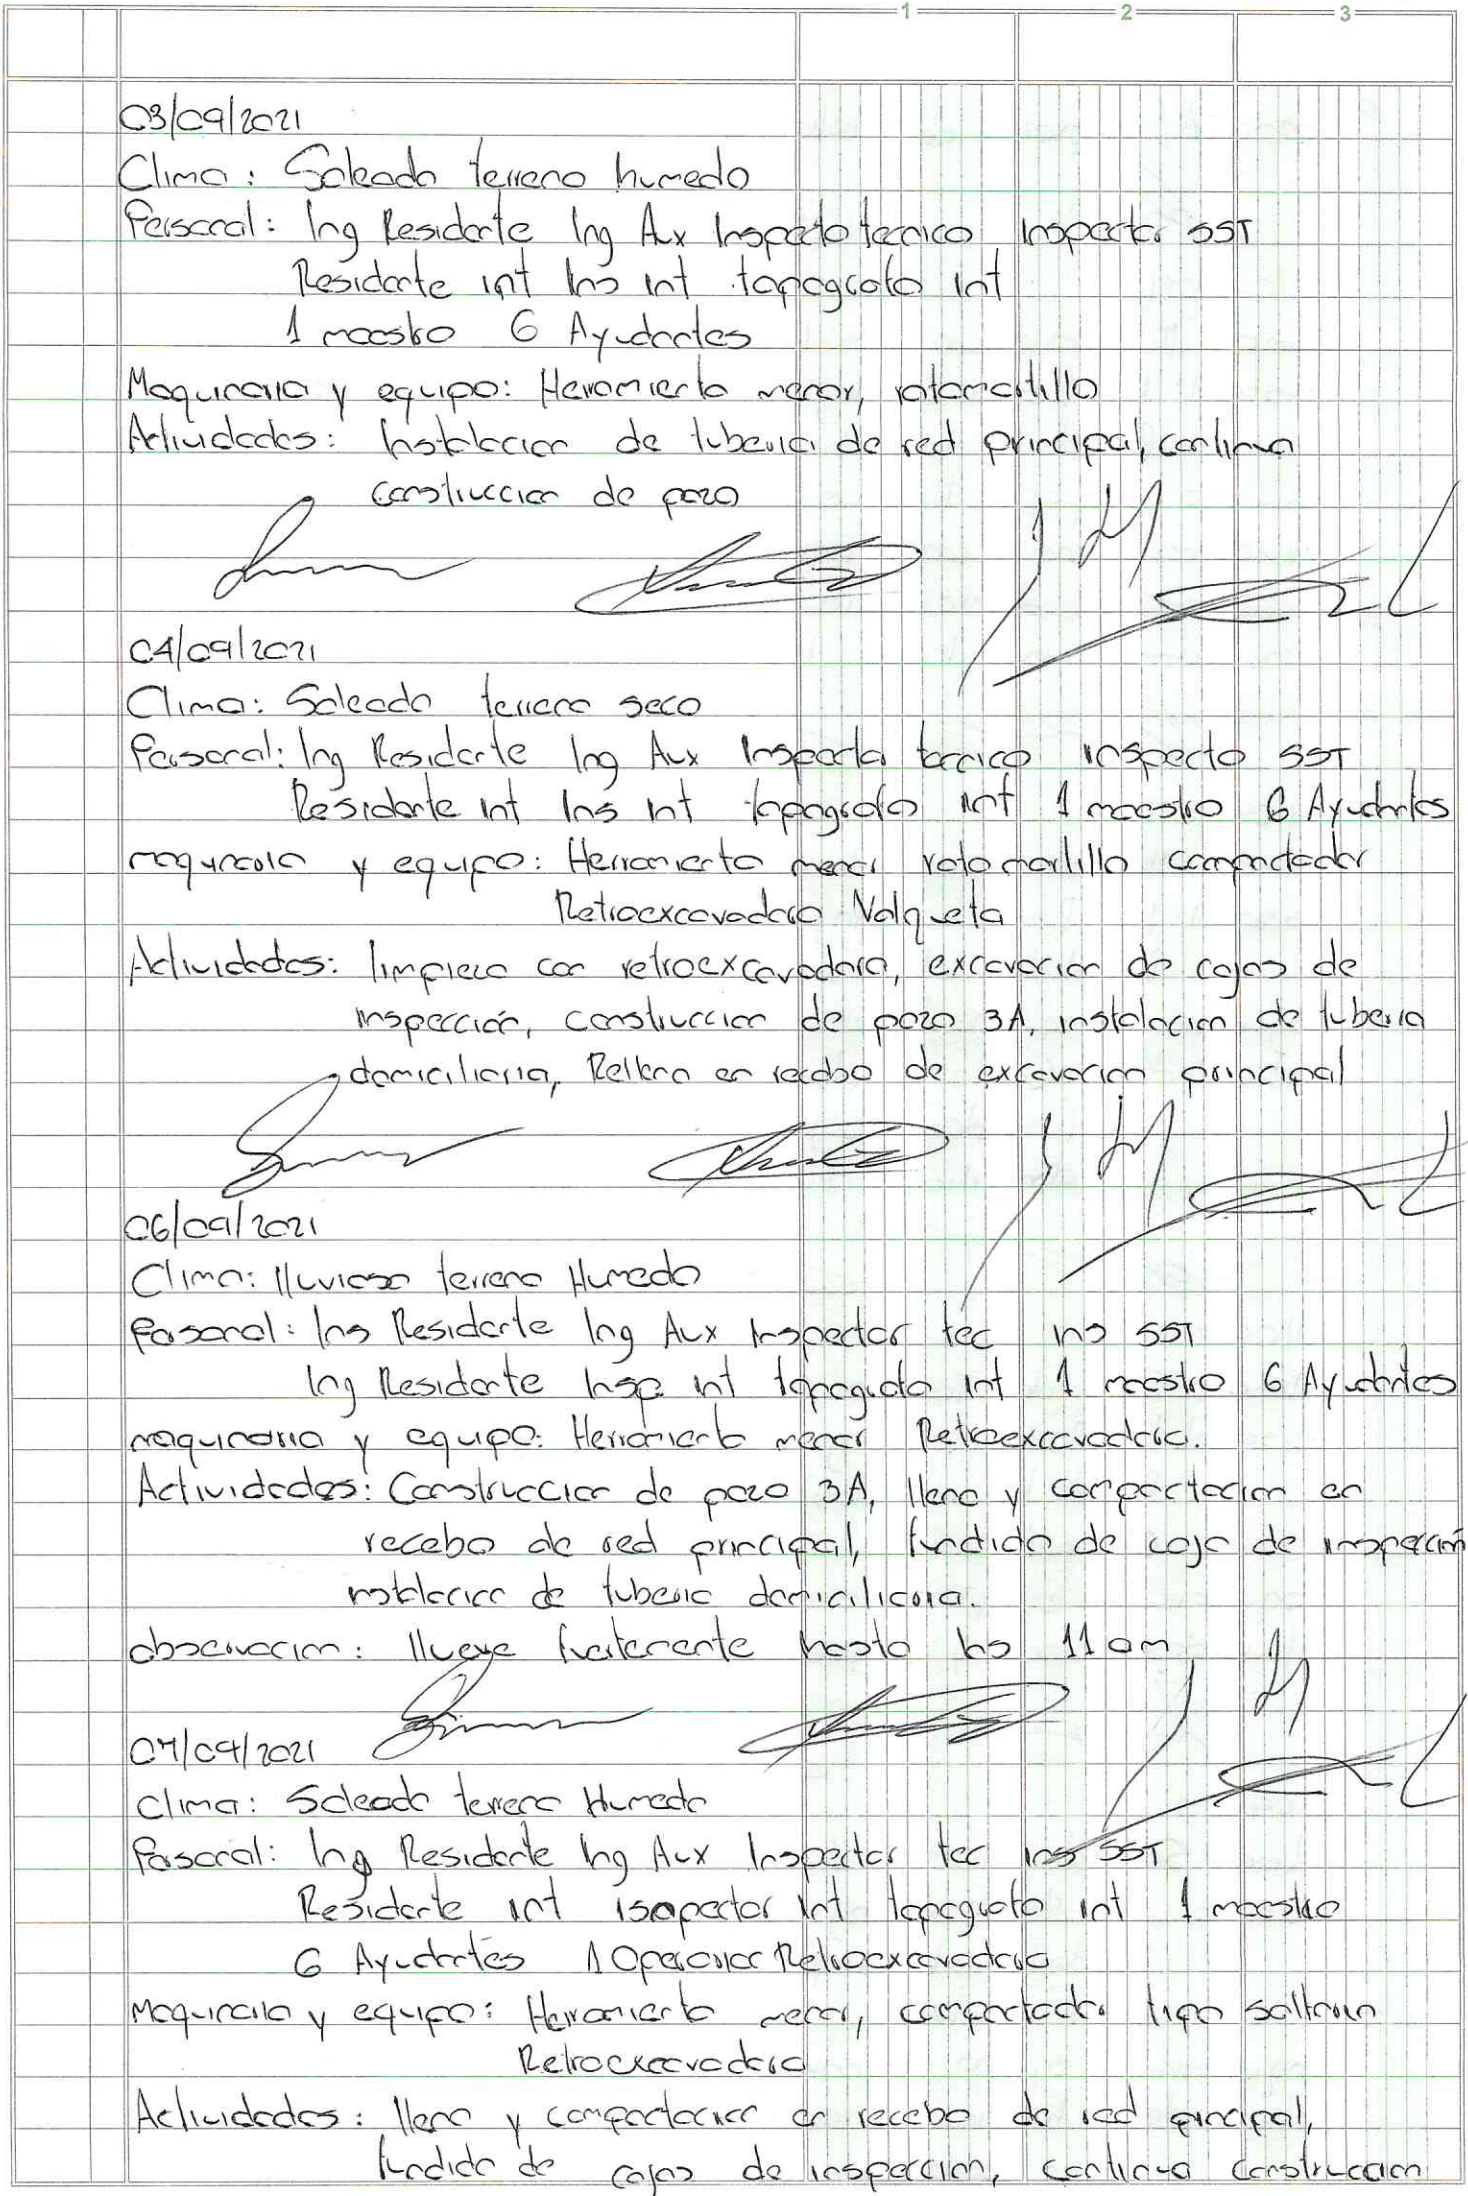 1 2 3
03/09/2021
Clima: Soleado terreno humedo
Personal: Ing Residente Ing Aux Inspecto tecnico Inspector SST
Residente int Ins int topografo int
1 maestro 6 Ayudantes
Maquinaria y equipo: Herramienta menor, rotomartillo
Actividades: Instalacion de tuberia de red principal, continua
construccion de pozo
04/09/2021
Clima: Soleado terreno seco
Personal: Ing Residente Ing Aux Inspector tecnico inspecto SST
Residente int Ins int topografo int 1 maestro 6 Ayudantes
maquinaria y equipo: Herramienta menor rotomartillo compactador
Retroexcavadora Volqueta
Actividades: limpieza con retroexcavadora, excavacion de cajas de
inspección, construccion de pozo 3A, instalacion de tuberia
domiciliaria, Relleno en recebo de excavacion principal
06/09/2021
Clima: lluvioso terreno Humedo
Personal: Ins Residente Ing Aux Inspector tec ins SST
Ing Residente Insp int topografo int 1 maestro 6 Ayudantes
maquinaria y equipo: Herramienta menor Retroexcavadora.
Actividades: Construccion de pozo 3A, lleno y compactacion en
recebo de red principal, fundido de caja de inspección
instalacion de tuberia domiciliaria.
observacion: llueve fuertemente hasta las 11 am
07/09/2021
Clima: Soleado terreno Humedo
Personal: Ing Residente Ing Aux Inspector tec ins SST
Residente int isnpector int topografo int 1 maestro
6 Ayudantes 1 Operador Retroexcavadora
Maquinaria y equipo: Herramienta menor, compactador tipo saltarin
Retroexcavadora
Actividades: lleno y compactacion en recebo de red principal,
fundido de cajas de inspeccion, continua construccion